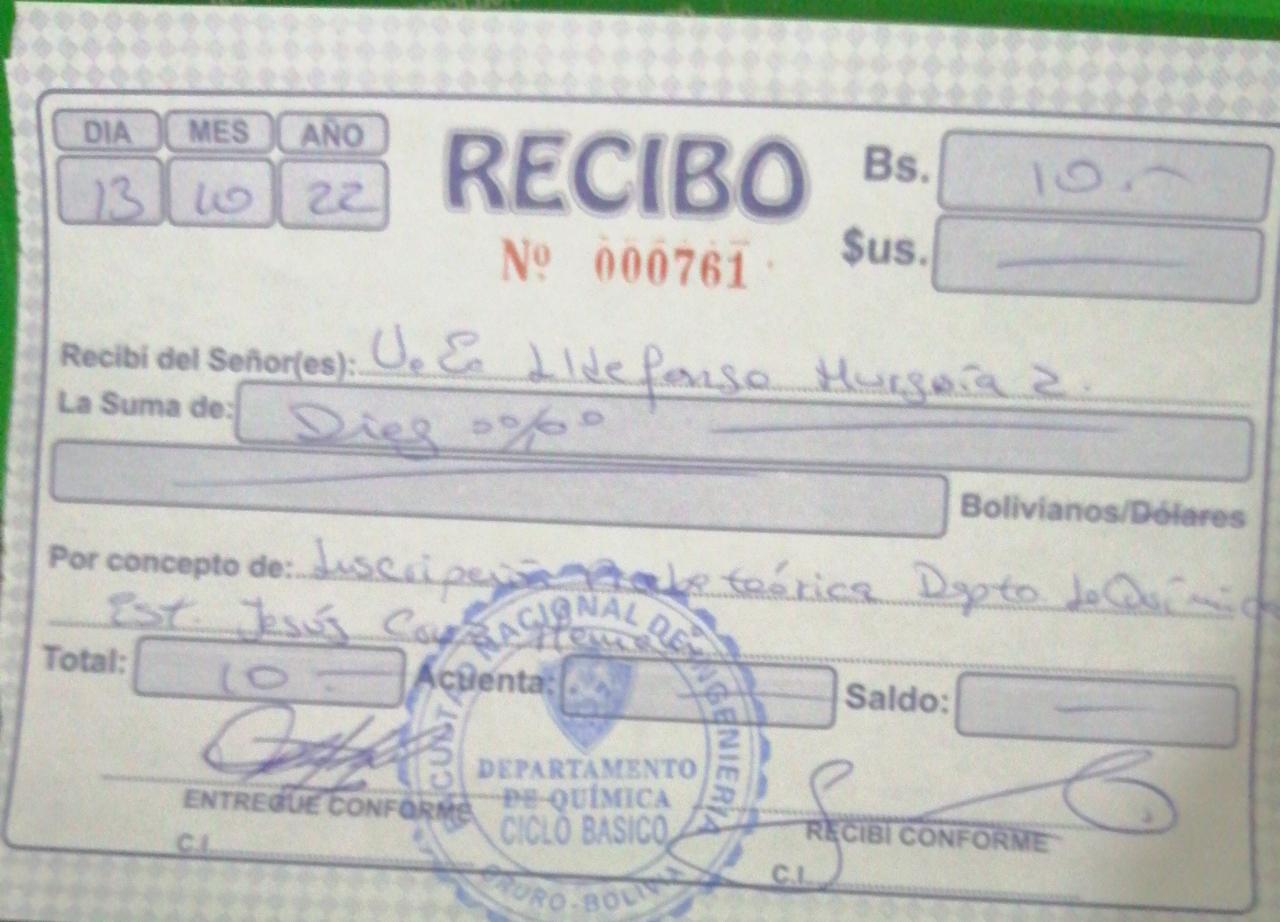 DIA MES AÑO
13 10 22
RECIBO
Nº 000761
Bs. 10.-
$us. —
Recibí del Señor(es): U. E. Ildefonso Murguía 2.
La Suma de: Diez 00/00
Bolivianos/Dólares
Por concepto de: Inscripción teórica Dpto de Química
Est. Jesús
Total: 10 - Acuenta: — Saldo: —
ENTREGUE CONFORME
C.I.
RECIBI CONFORME
C.I.
FACULTAD NACIONAL DE INGENIERIA
DEPARTAMENTO
DE QUÍMICA
CICLO BASICO
ORURO - BOLIVIA